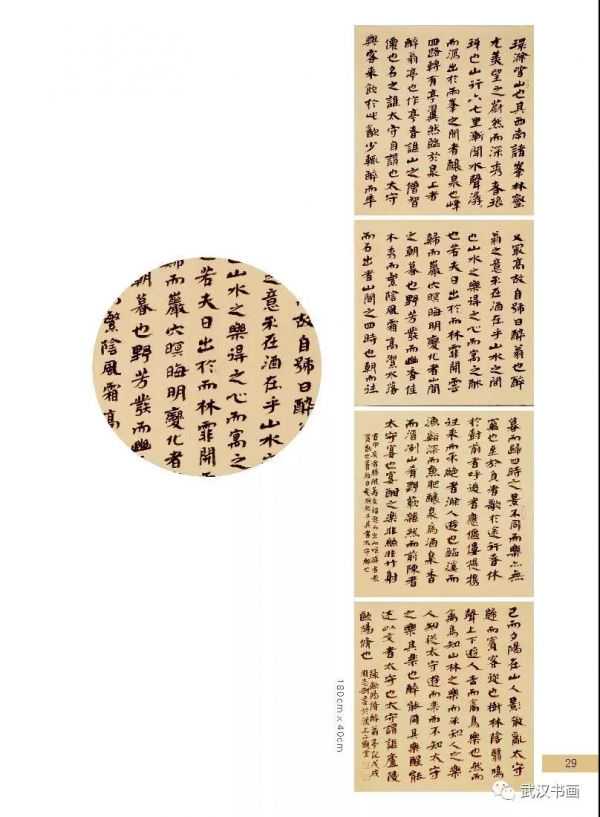 環滁皆山也其西南諸峯林壑
尤美望之蔚然而深秀者琅
琊也山行六七里漸聞水聲潺
而瀉出於兩峯之間者釀泉也峰
回路轉有亭翼然臨於泉上者
醉翁亭也作亭者誰山之僧智
僊也名之誰太守自謂也太守
與客來飲於此飲少輒醉而年
又最高故自號曰醉翁也醉
翁之意不在酒在乎山水之間
也山水之樂得之心而寓之酒
也若夫日出於而林霏開雲
歸而巖穴暝晦明變化者山間
之朝暮也野芳發而幽香佳
木秀而繁陰風霜高潔水落
而石出者山間之四時也朝而往
暮而歸四時之景不同而樂亦無
窮也至於負者歌於途行者休
於樹前者呼後者應傴僂提攜
往來而不絕者滁人遊也臨溪而
漁谿深而魚肥釀泉為酒泉香
而酒冽山肴野蔌雜然而前陳者
太守宴也宴酣之樂非絲非竹射
已而夕陽在山人影散亂太守
歸而賓客從也樹林陰翳鳴
聲上下遊人去而禽鳥樂也然而
禽鳥知山林之樂而不知人之樂
人知從太守遊而樂而不知太守
之樂其樂也醉能同其樂醒能
述以文者太守也太守謂誰廬陵
歐陽脩也
故自號曰醉
之意不在酒在乎山水
山水之樂得之心而寓之
若夫日出於而林霏開
歸而巖穴暝晦明變化者
朝暮也野芳發而幽
繁陰風霜高
180cm×40cm
29
武汉书画